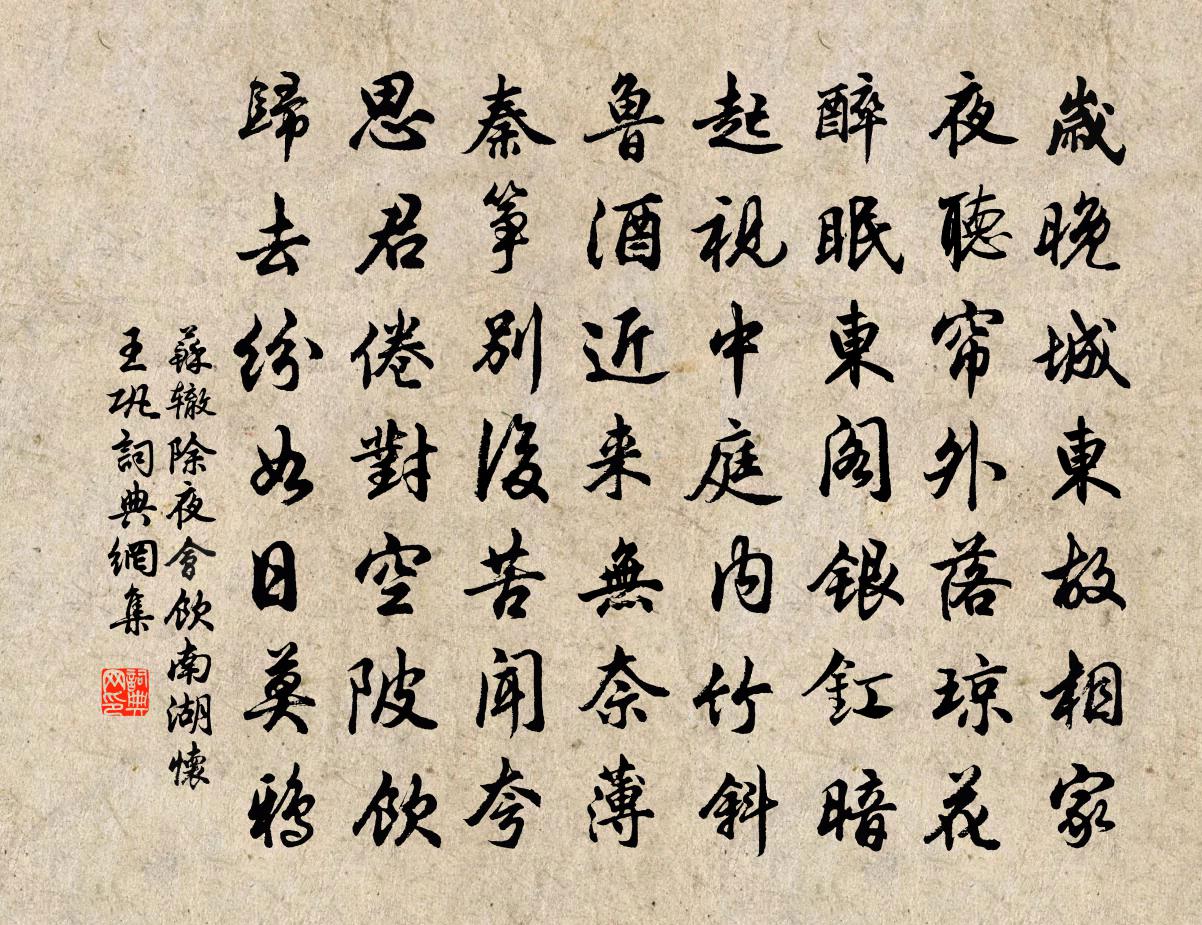 歲晚城東故相家
夜聽帘外落琼花
醉眠東阁銀釭暗
起視中庭内竹斜
魯酒近来無奈薄
秦筝别後苦聞夸
思君倦對空陂飲
歸去紛如日莫鴉
蘇辙除夜會飲南湖懷
王巩詞典網集
詞典网印